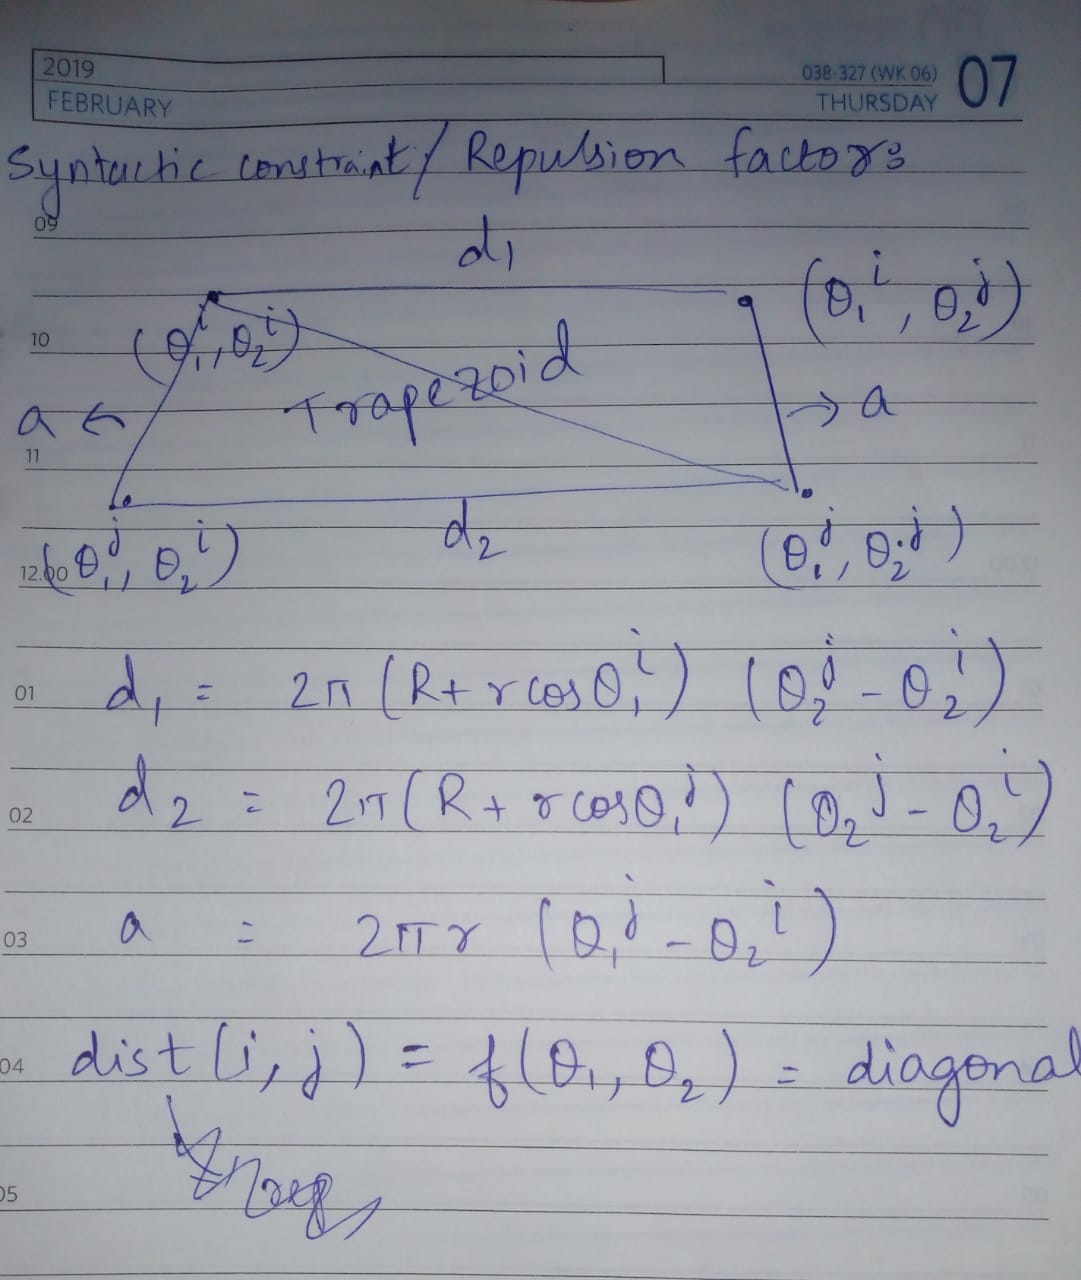 2019
FEBRUARY
038-327 (WK 06)
THURSDAY
07
Syntactic constraint / Repulsion factor:
09
d₁
(θ₁ⁱ, θ₂ʲ)
10
(θ₁ⁱ, θ₂ⁱ)
Trapezoid
a ←
→ a
11
d₂
12.00
(θ₁ʲ, θ₂ⁱ)
(θ₁ʲ, θ₂ʲ)
01 d₁ = 2π (R + r cos θ₁ⁱ) (θ₂ʲ - θ₂ⁱ)
02 d₂ = 2π (R + r cos θ₁ʲ) (θ₂ʲ - θ₂ⁱ)
03 a = 2πr (θ₁ʲ - θ₂ⁱ)
04 dist (i, j) = f(θ₁, θ₂) = diagonal
05